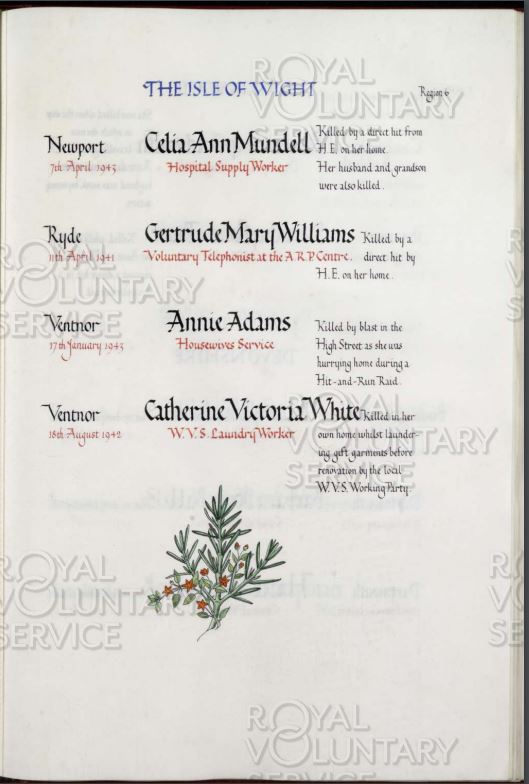 THE ISLE OF WIGHT
Region 6
Newport
7th April 1943
Celia Ann Mundell
Hospital Supply Worker
Killed by a direct hit from
H.E. on her home.
Her husband and grandson
were also killed.
Ryde
11th April 1941
Gertrude Mary Williams
Voluntary Telephonist at the A.R.P. Centre.
Killed by a
direct hit by
H.E. on her home.
Ventnor
17th January 1943
Annie Adams
Housewives Service
Killed by blast in the
High Street as she was
hurrying home during a
Hit-and-Run Raid.
Ventnor
18th August 1942
Catherine Victoria White
W.V.S. Laundry Worker
Killed in her
own home whilst launder-
ing gift garments before
renovation by the local
W.V.S. Working Party.
ROYAL
VOLUNTARY
SERVICE
ROYAL
VOLUNTARY
SERVICE
ROYAL
VOLUNTARY
SERVICE
ROYAL
VOLUNTARY
SERVICE
ROYAL
VOLUNTARY
SERVICE
ROYAL
VOLUNTARY
SERVICE